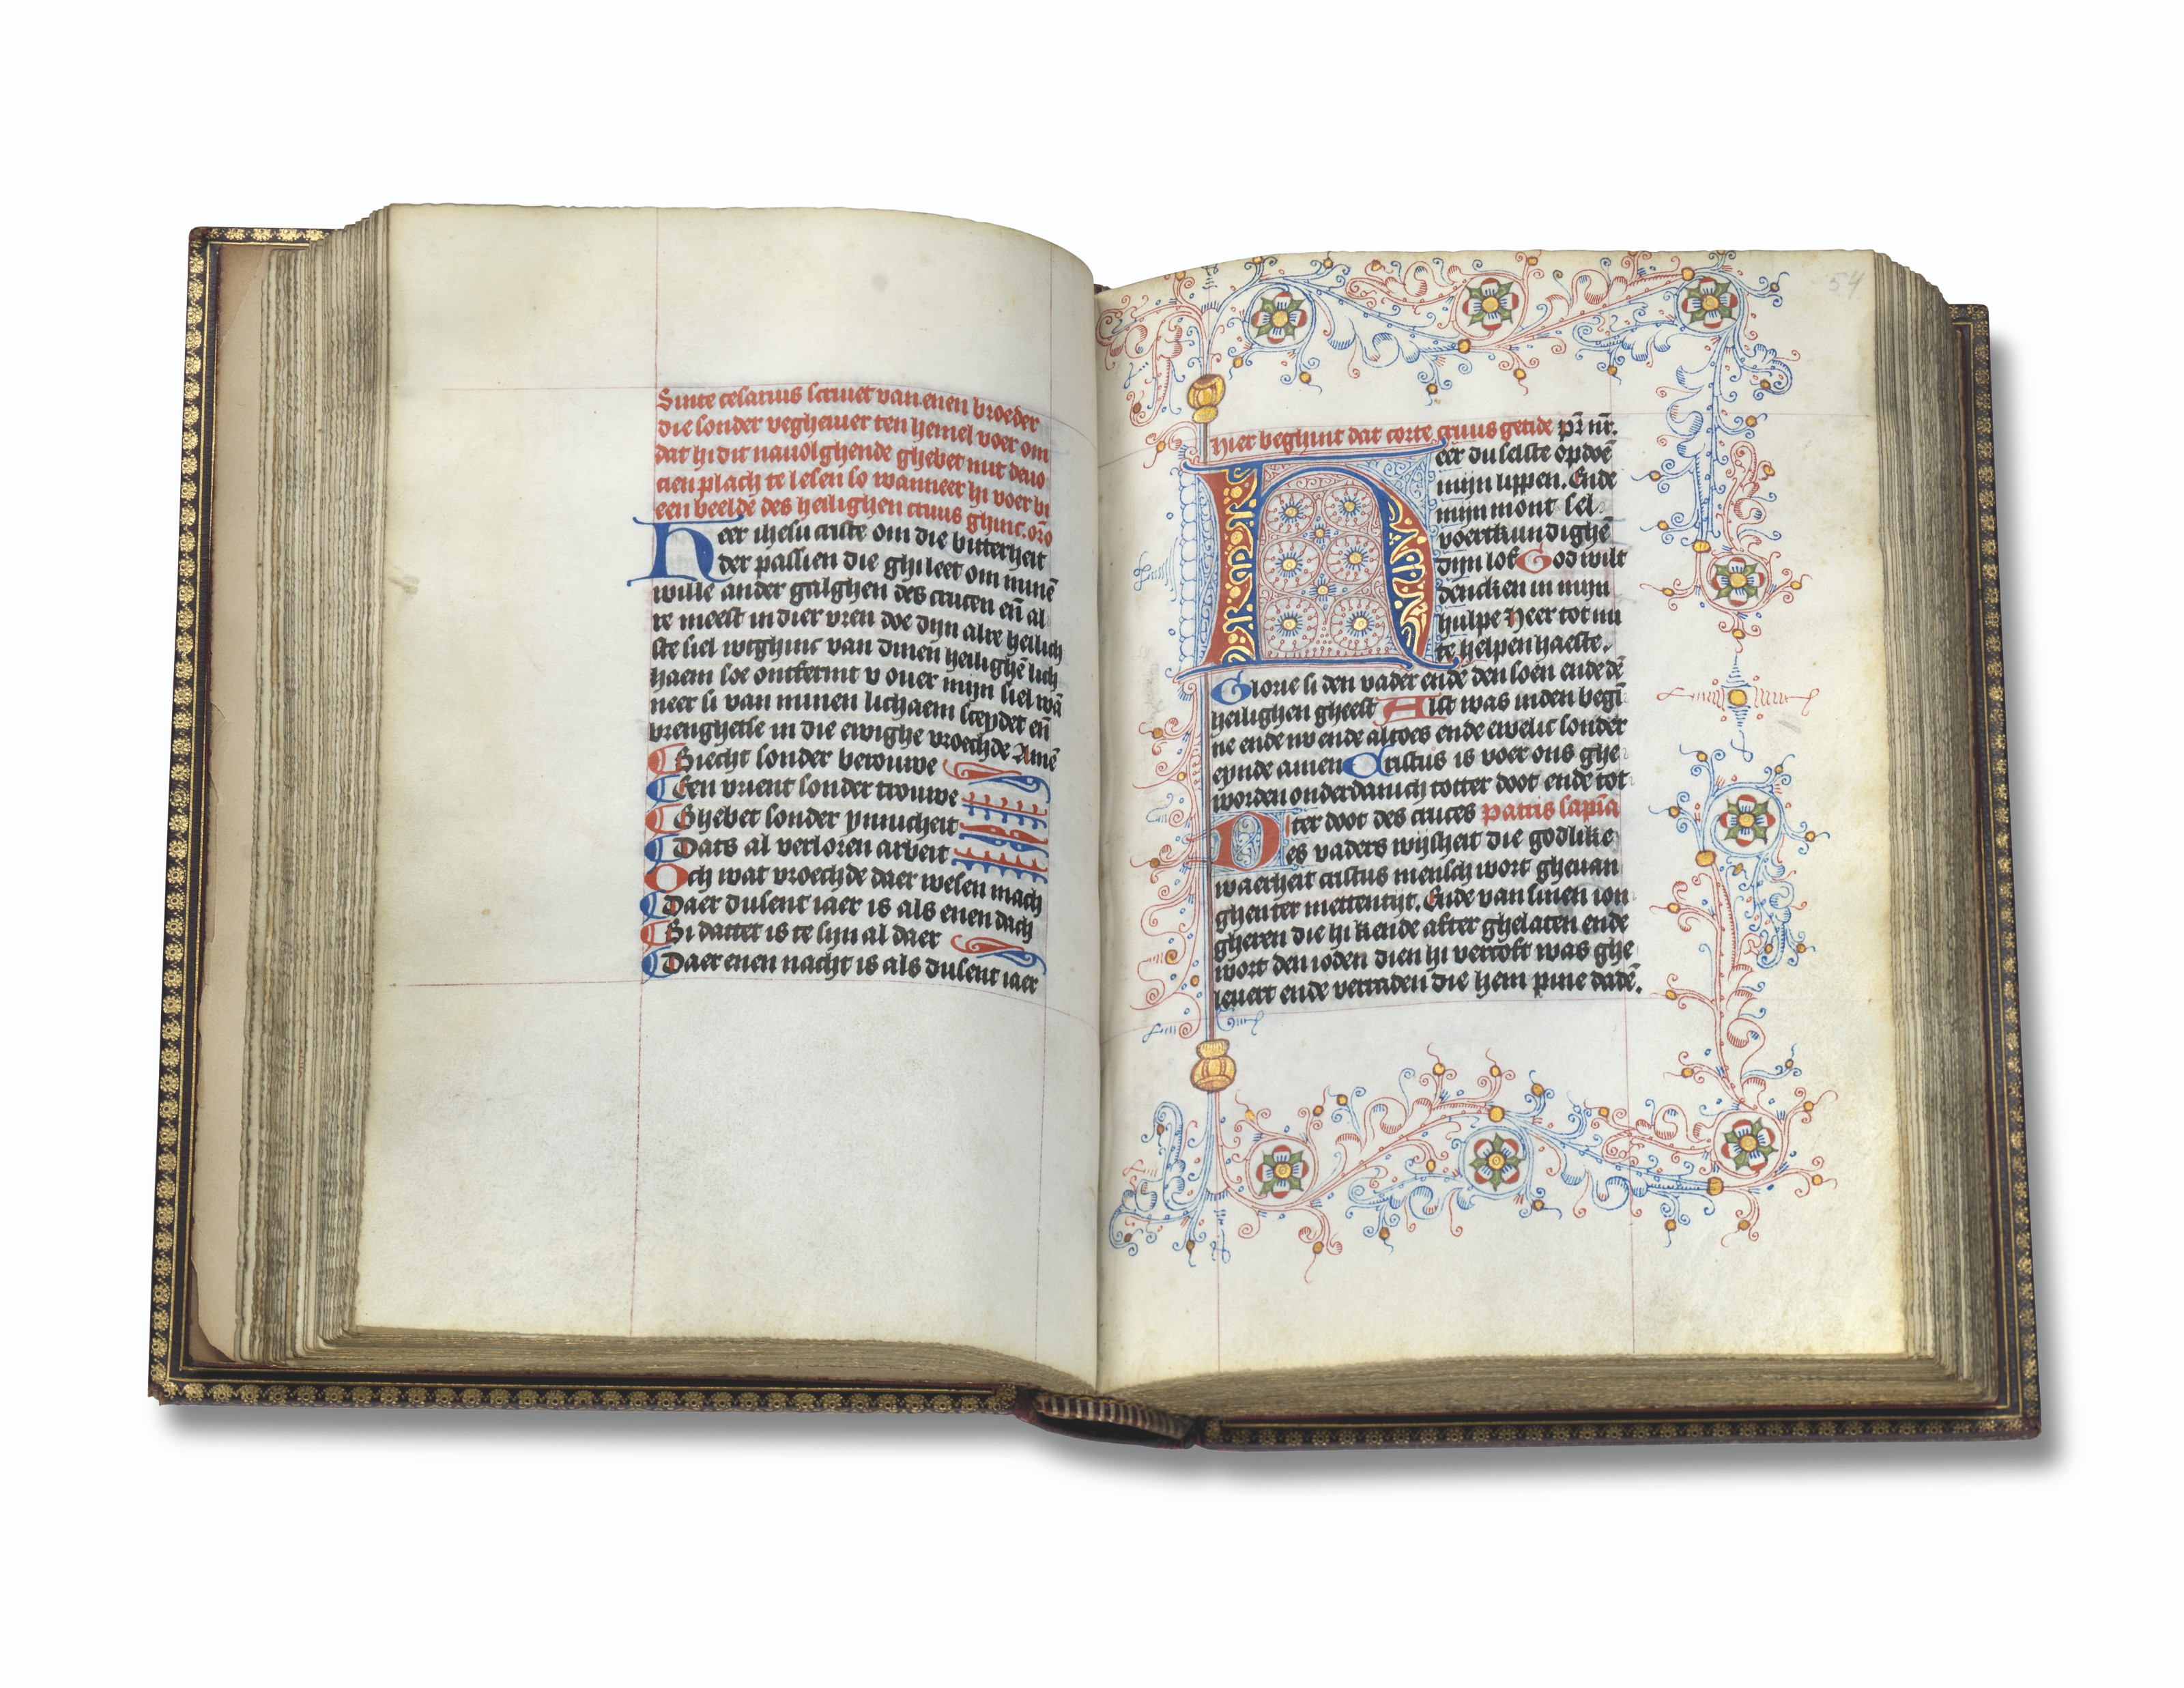 Sinte cesarius scruiet van enen broeder
die sonder vegheuier ten hemel voer om
dat hi dit nauolghende ghebet mit deuo
cien plach te lesen so wanneer hi voer bi
een beelde des heilighen cruus ghinc. oro
Heer ihesu criste om die bitterheit
der passien die ghi leet om minē
wille ander galghen des crucen eñ al
re meest in dier vren doe dijn alre heilich
ste siel wtghinc van dinen heilighē lich
haem soe ontfermt v ouer mijn siel wā
neer si van minen lichaem sceydet eñ
brenghetse in die ewighe vroechde Amē
Biecht sonder berouwe
Een vrient sonder trouwe
Ghebet sonder ynnicheit
Dats al verloren arbeit
Och wat vroechde daer wesen mach
Daer dusent iaer is als enen dach
Si dattet is te sijn al daer
Daer enen nacht is als dusent iaer
54
Hier beghint dat corte cruus getide pr̄ nr̄.
Heer du selste opdoē
mijn lippen. Ende
mijn mont sel
voertkundighē
dijn lof God wilt
dencken in mijn
hulpe Heer tot mi
te helpen haeste.
Glorie si den vader ende den soen ende dē
heilighen gheest Alst was inden begī
ne ende nv ende altoes ende ewelic sonder
eynde amen Cristus is voer ons ghe
worden onderdanich totter doot ende tot
ter doot des cruces Patris sapīa
Des vaders wijsheit die godlike
waerheit cristus mensch wort gheuan
ghen ter mettentijt. Ende van sinen ion
gheren die hi kende after ghelaten ende
wort den ioden dien hi vercoft was ghe
leuert ende verraden die hem pine dadē.